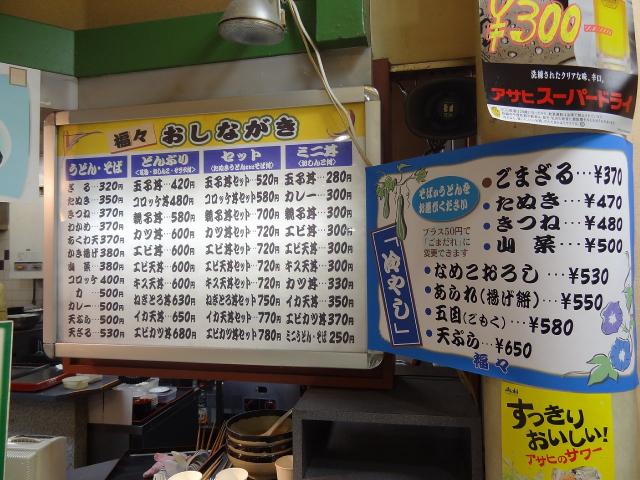 福々 おしながき
うどん・そば
ざる 320円
たぬき 350円
きつね 370円
わかめ 370円
あくわ天 370円
かき揚げ 380円
山菜 380円
コロッケ 400円
力 500円
カレー 500円
天ぷら 500円
天ざる 530円
どんぶり
玉子丼 420円
コロッケ丼 480円
親子丼 580円
カツ丼 600円
エビ丼 600円
エビ天丼 600円
キス天丼 600円
ねぎとろ丼 630円
イカ天丼 650円
エビカツ丼 680円
セット
玉子丼セット 520円
コロッケ丼セット 580円
親子丼セット 700円
カツ丼セット 720円
エビ丼セット 720円
エビ天丼セット 720円
キス天丼セット 720円
ねぎとろ丼セット 750円
イカ天丼セット 770円
エビカツ丼セット 780円
ミニ丼
玉子丼 280円
カレー 300円
親子丼 300円
カツ丼 300円
エビ丼 300円
エビ天丼 300円
キス天丼 300円
カツカレー 330円
イカ天丼 350円
エビカツ丼 370円
ミニうどん・そば 250円
¥300
洗練されたクリアな味、辛口。
アサヒスーパードライ
そばかうどんを
お選びください
プラス50円で
「ごまだれ」に
変更できます
「冷やし」
ごまざる…¥370
たぬき…¥470
きつね…¥480
山菜…¥500
なめこおろし…¥530
あられ(揚げ餅)…¥550
五目(ごもく)…¥580
天ぷら…¥650
福々
すっきり
おいしい!
アサヒのサワー